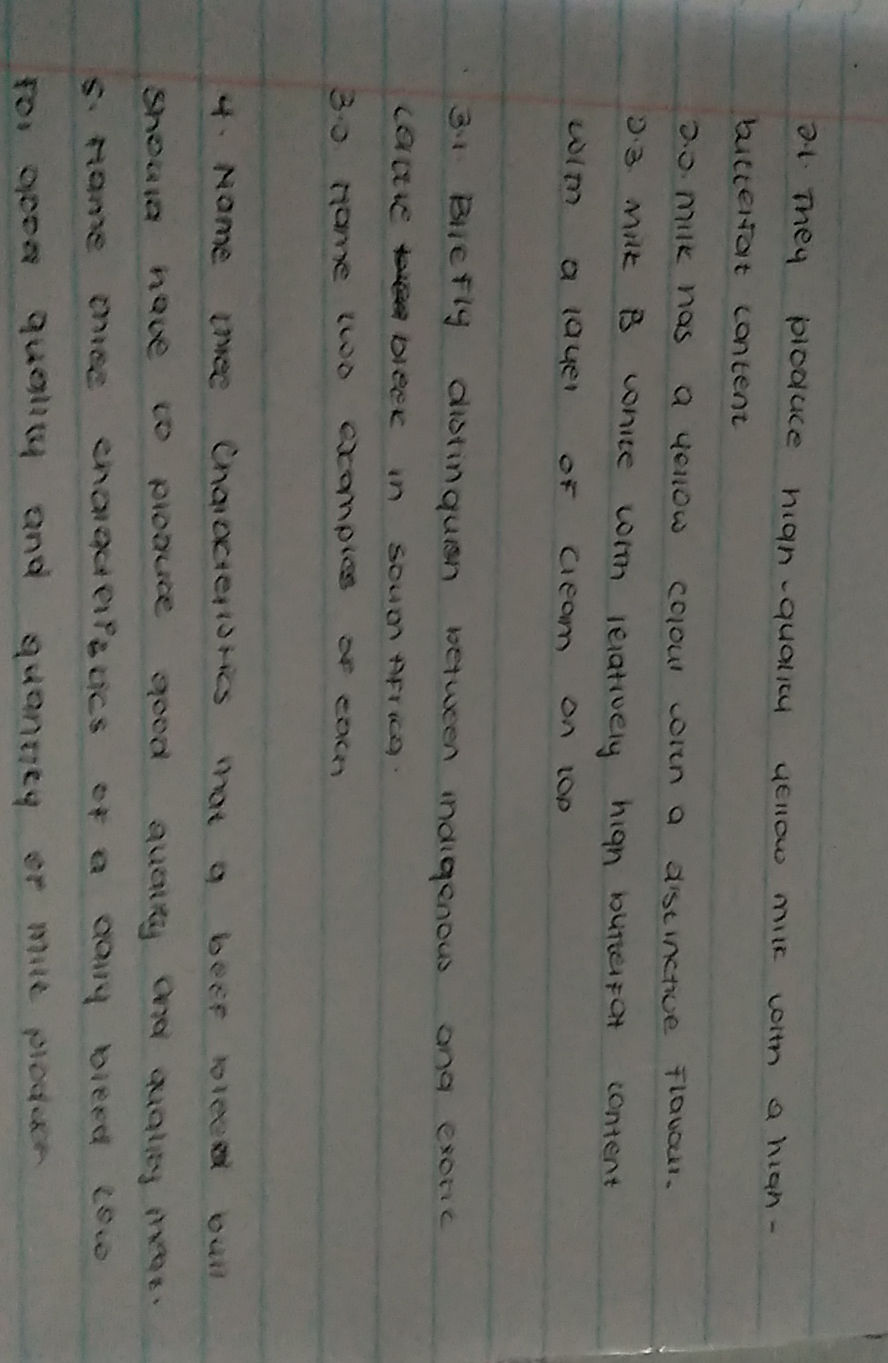 2.1. They produce high-quality yellow milk with a high-
butterfat content
2.2. milk has a yellow colour with a distinctive flavour.
2.3 milk B white with relatively high butterfat content
with a layer of cream on top
3.1. Briefly distinguish between indigenous and exotic
cattle breek in south Africa.
3.2 Name two examples of each
4. Name three Characteristics that a beef breed bull
should have to produce good quality and quality meat.
5. Name three characteristics of a dairy breed cow
For good quality and quantity of milk